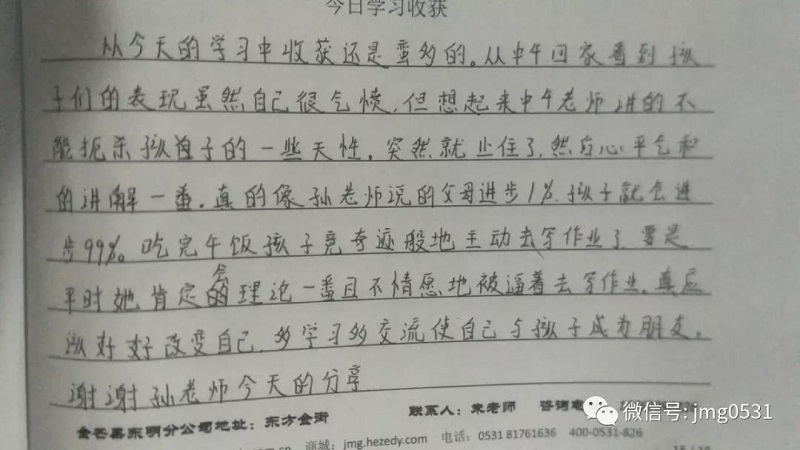 今日学习收获
从今天的学习中收获还是蛮多的。从中午回家看到孩
子们的表现虽然自己很气愤,但想起来中午老师讲的不
能扼杀孩子的一些天性,突然就止住了,然后心平气和
的讲解一番。真的像孙老师说的父母进步1%,孩子就会进
步99%。吃完午饭孩子竟奇迹般地主动去写作业了,要是
平时她肯定会理论一番且不情愿地被逼着去写作业,真应
该好好改变自己,多学习多交流使自己与孩子成为朋友,
谢谢孙老师今天的分享
金芒果东明分公司地址:东方金街 联系人:朱老师 咨询电
商城:jmg.hezedy.com 电话:0531 81761636 400-0531-826
微信号:jmg0531